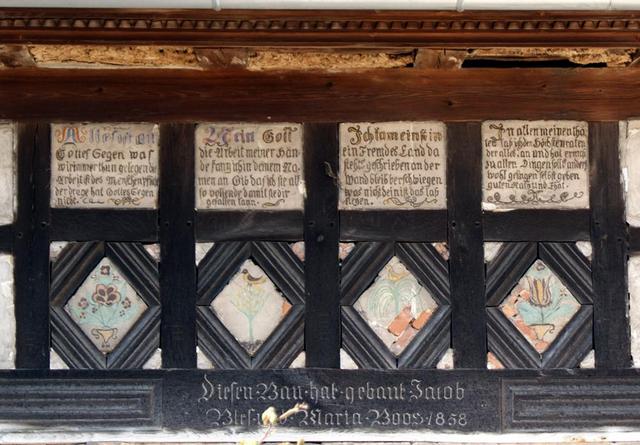 Alles ist an
Gottes Segen was
wir immer hin gelegen
Arbeit ist des Menschen Pflich
der träge hat Gottes Segen
nicht.
Mein Gott
die Arbeit meiner Hän
de fang ich in deinem Na
men an Gib das ich sie all
so vollende damit sie dir
gefallen kann.
Ich kam einst in
ein Fremdes Land da
geschrieben an der
Wand bleib verschwiegen
was nicht dein ist das laß
liegen.
In allen meinen tha
ten laß ich den Höchsten raten
der alles kan und hat er mus
zu allen Dingen solls anders
wohl gelingen selbst geben
guten rat und That.
Diesen Bau hat gebaut Jacob
Maria Boos 1858